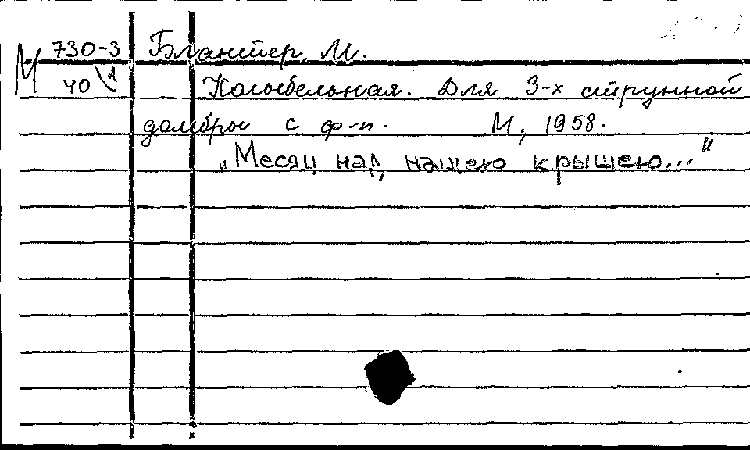 М 730-3 Блантер, М.
40 1 Колыбельная. Для 3-х струнной
домбры с ф-п. М, 1958.
„Месяц над нашею крышею..."